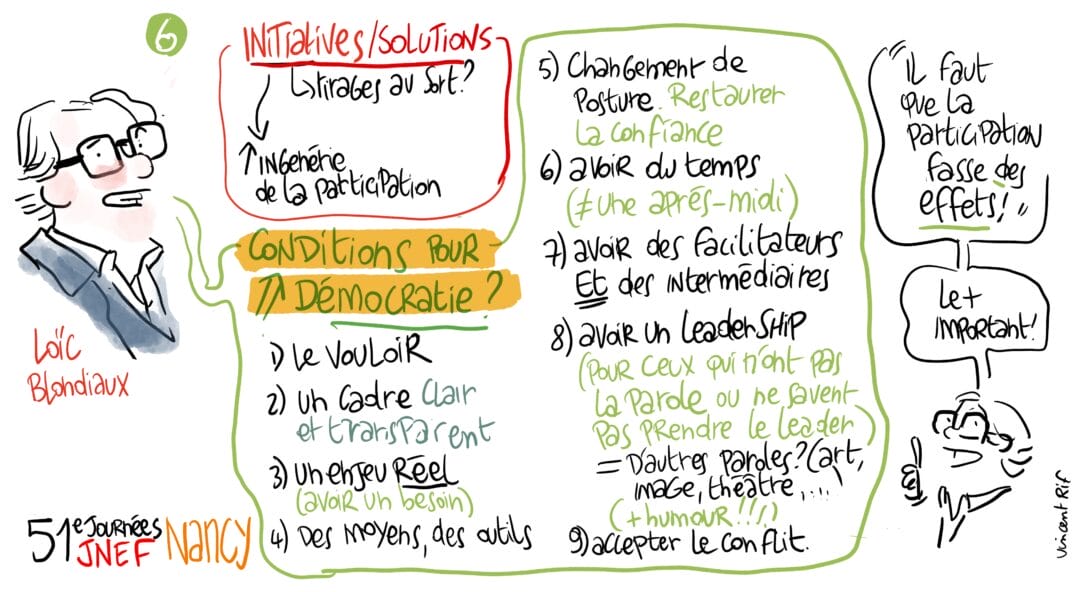 6
Loïc
Blondiaux
51e JOURNÉES
JNEF NANCY
INITIATIVES/SOLUTIONS
↳ tirages au sort?
↑ INGENÉRIE
de la participation
CONDITIONS POUR
↑↑ DÉMOCRATIE ?
1) LE VOULOIR
2) un cadre clair
et transparent
3) un enjeu RÉEL
(avoir un besoin)
4) Des moyens, des outils
5) Changement de
Posture. Restaurer
la confiance
6) avoir du temps
(≠ une aprés-midi)
7) avoir des facilitateurs
ET des intermédiaires
8) avoir un leaderSHIP
(pour ceux qui n'ont pas
la parole ou ne savent
pas prendre le leader)
= D'autres paroles? (art,
image, théâtre, ...
(+ humour !!!)
9) accepter le conflit.
"IL faut
que la
participation
fasse des
effets! "
Le +
IMPORTANT!
Vincent Rif